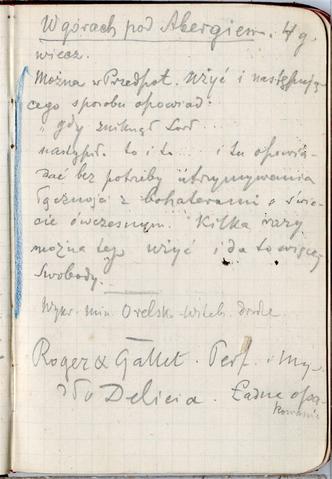 W górach pod Abergiem. 4 g.
wiecz.
Można w Przedpot. użyć i następują
cego sposobu opowiad:
"gdy zniknął Lord...
nastąpiło to i to... i tu opowia-
dać bez potrzeby utrzymywania
łączności z bohaterami o świe-
cie ówczesnym. Kilka razy
można tego użyć i da to więcej
Swobody.
Wykr. min. Orelsk-Witeb.
Roger & Gallet. Perf. i My-
dło Delicia. Ładne opa-
kowanie